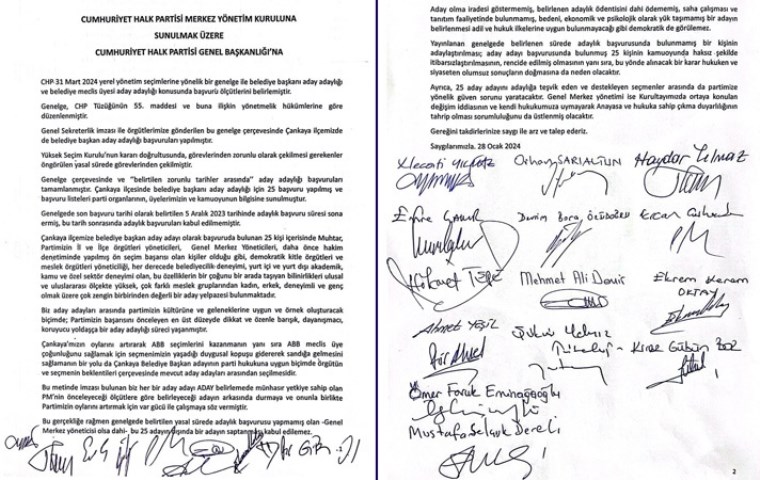 CUMHURİYET HALK PARTİSİ MERKEZ YÖNETİM KURULUNA
SUNULMAK ÜZERE
CUMHURİYET HALK PARTİSİ GENEL BAŞKANLIĞI'NA
CHP 31 Mart 2024 yerel yönetim seçimlerine yönelik bir genelge ile belediye başkanı aday adaylığı
ve belediye meclis üyesi aday adaylığı konusunda başvuru ölçütlerini belirlemiştir.
Genelge, CHP Tüzüğünün 55. maddesi ve buna ilişkin yönetmelik hükümlerine göre
düzenlenmiştir.
Genel Sekreterlik imzası ile örgütlerimize gönderilen bu genelge çerçevesinde Çankaya ilçemizde
de belediye başkan aday adaylığı başvuruları yapılmıştır.
Yüksek Seçim Kurulu'nun kararı doğrultusunda, görevlerinden zorunlu olarak çekilmesi gerekenler
öngörülen yasal sürede görevlerinden çekilmiştir.
Genelge çerçevesinde ve "belirtilen zorunlu tarihler arasında" aday adaylığı başvuruları
tamamlanmıştır. Çankaya ilçesinde belediye başkanı aday adaylığı için 25 başvuru yapılmış ve
başvuru listeleri parti organlarının, üyelerimizin ve kamuoyunun bilgisine sunulmuştur.
Genelgede son başvuru tarihi olarak belirtilen 5 Aralık 2023 tarihinde adaylık başvuru süresi sona
ermiş, bu tarih sonrasında adaylık başvuruları kabul edilmemiştir.
Çankaya ilçemize belediye başkan aday adayı olarak başvuruda bulunan 25 kişi içerisinde Muhtar,
Partimizin İl ve İlçe örgütleri yöneticileri, Genel Merkez Yöneticileri, daha önce hakim
denetiminde yapılmış ön seçim başarısı olan kişiler olduğu gibi, demokratik kitle örgütleri ve
meslek örgütleri yöneticiliği, her derecede belediyecilik deneyimi, yurt içi ve yurt dışı akademik,
kamu ve özel sektör deneyimi olan, bu özelliklerin bir çoğunu bir arada taşıyan bilinirlikleri ulusal
ve uluslararası ölçekte yüksek, çok farklı meslek gruplarından kadın, erkek, deneyimli ve genç
olmak üzere çok zengin birbirinden değerli bir aday yelpazesi bulunmaktadır.
Biz aday adayları arasında partimizin kültürüne ve geleneklerine uygun ve örnek oluşturacak
biçimde; Partimizin başarısını önceleyen en üst düzeyde dikkat ve özenle barışık, dayanışmacı,
koruyucu yoldaşça bir aday adaylığı süreci yaşanmıştır.
Çankaya'mızın oylarını artırarak ABB seçimlerini kazanmanın yanı sıra ABB meclis üye
çoğunluğunu sağlamak için seçmenimizin yaşadığı duygusal kopuşu gidererek sandığa gelmesini
sağlamanın bir yolu da Çankaya Belediye Başkan adayının parti hukukuna uygun biçimde Örgütün
ve seçmenin beklentileri çerçevesinde mevcut aday adayları arasından seçilmesidir.
Bu metinde imzası bulunan biz her bir aday adayı ADAY belirlemede münhasır yetkiye sahip olan
PM'nin önceleyeceği ölçütlere göre belirleyeceği adayın arkasında durmaya ve onunla birlikte
Partimizin oylarını artırmak için var gücü ile çalışmaya söz vermiştir.
Bu gerçekliğe rağmen genelgede belirtilen yasal sürede adaylık başvurusu yapmamış olan -Genel
Merkez yöneticisi olsa dahi- bu 25 adayın dışında bir adayın saptanması kabul edilemez.
Aday olma iradesi göstermemiş, belirlenen adaylık ödentisini dahi ödememiş, saha çalışması ve
tanıtım faaliyetinde bulunmamış, bedeni, ekonomik ve psikolojik olarak yük taşımamış bir adayın
belirlenmesi adil ve hukuk ilkelerine uygun bulunmayacağı gibi demokratik de görülemez.
Yayınlanan genelgede belirlenen sürede adaylık başvurusunda bulunmamış bir kişinin
adaylaştırılması; adaylık başvurusunda bulunmuş 25 kişinin kamuoyunda haksız şekilde
itibarsızlaştırılmasının, rencide edilmiş olmasının yanı sıra, bu yönde alınacak bir karar hukuken ve
siyaseten olumsuz sonuçların doğmasına da neden olacaktır.
Ayrıca, 25 aday adayını adaylığa teşvik eden ve destekleyen seçmenler arasında da partimize
yönelik güven sorunu yaratacaktır. Genel Merkez yönetimi ise Kurultayımızda ortaya konulan
değişim iddiasının ve kendi hukukumuza uymayarak Anayasa ve hukuka sahip çıkma duyarlılığının
tahrip olması sorumluluğunu da üstlenmiş olacaktır.
Gereğini takdirlerinize saygı ile arz ve talep ederiz.
Saygılarımızla. 28 Ocak 2024
Necati YILMAZ Orhan SARIALTUN Haydar Yılmaz
Emre Deniz Bora Ercan
Hikmet TEPE Mehmet Ali Demir Ekrem Kerem
OKTAY
Ahmet YEŞİL Şükrü Yılmaz
Ömer Faruk Eminağaoğlu
Mustafa Selçuk Dereli
2